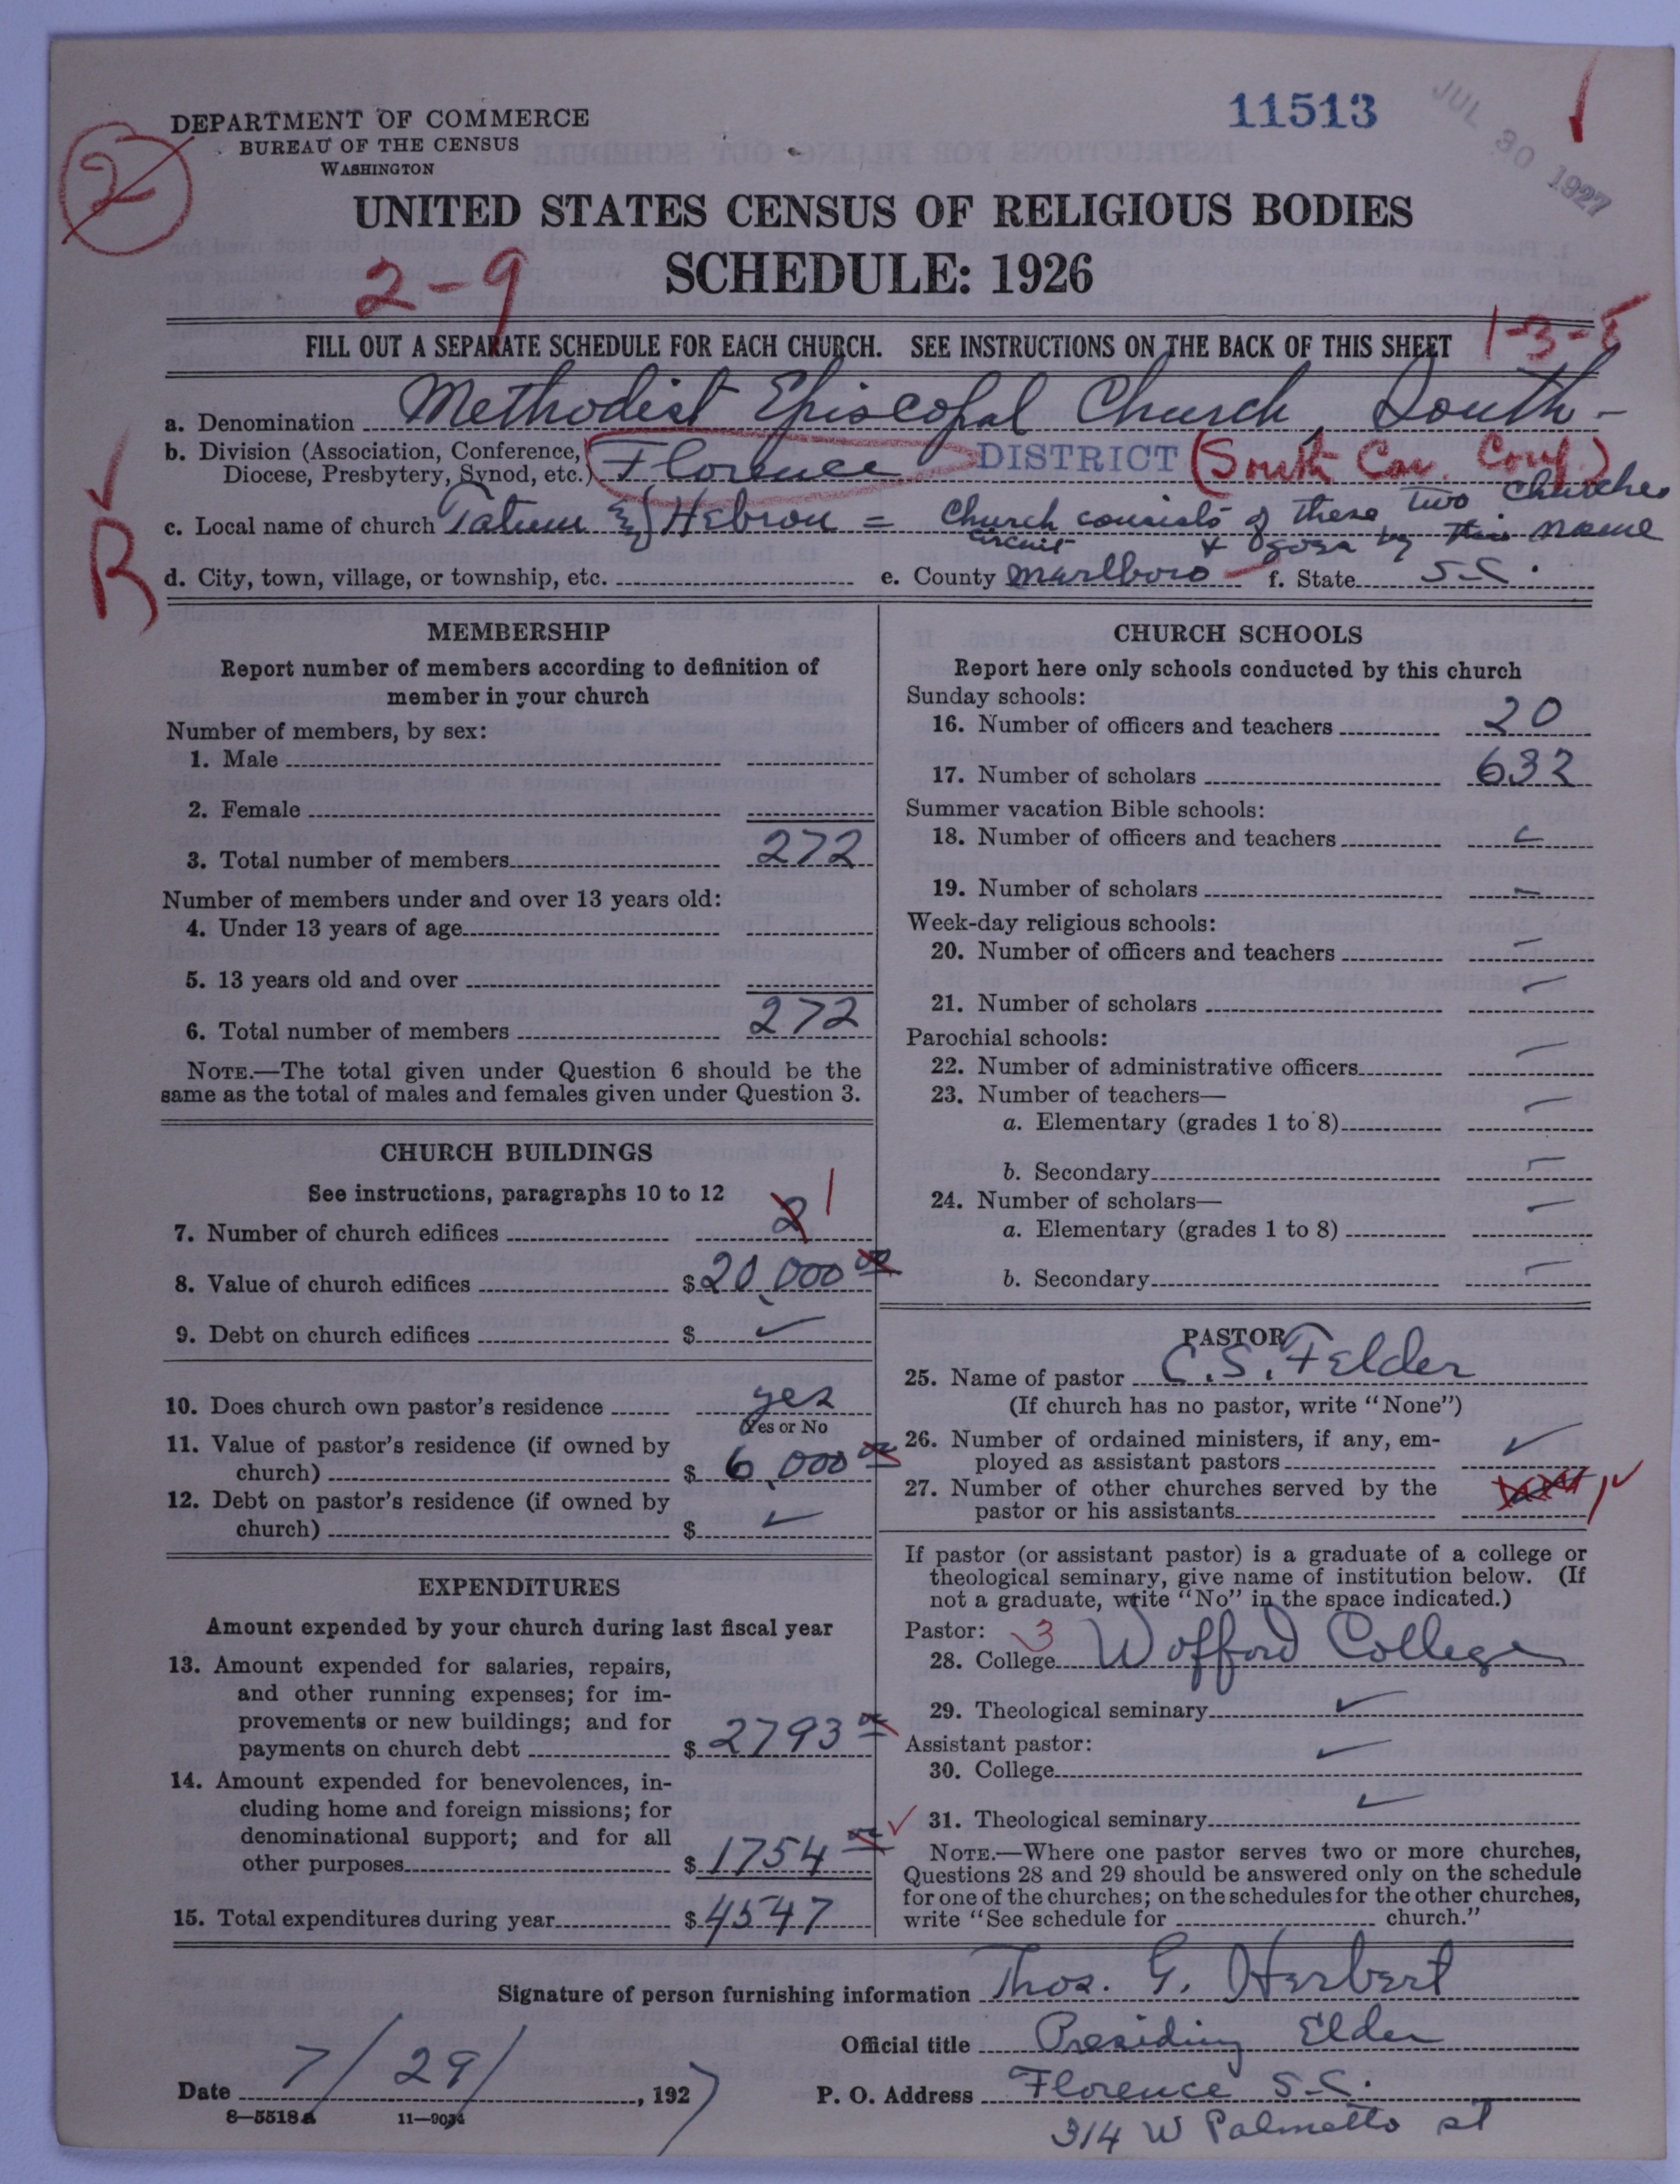 11513
JUL 30 1927
DEPARTMENT OF COMMERCE
BUREAU OF THE CENSUS
WASHINGTON
2
UNITED STATES CENSUS OF RELIGIOUS BODIES
2-9
SCHEDULE: 1926
FILL OUT A SEPARATE SCHEDULE FOR EACH CHURCH. SEE INSTRUCTIONS ON THE BACK OF THIS SHEET
1-3-
a. Denomination Methodist Episcopal Church, South-
b. Division (Association, Conference, Diocese, Presbytery, Synod, etc.) Florence DISTRICT (South Car. Conf.)
R
c. Local name of church Tatum & Hebron = Church consists of these two Churches
circuit & goes by this name
d. City, town, village, or township, etc. e. County Marlboro f. State S.C.
MEMBERSHIP
Report number of members according to definition of
member in your church
Number of members, by sex:
1. Male
2. Female
3. Total number of members 272
Number of members under and over 13 years old:
4. Under 13 years of age
5. 13 years old and over
6. Total number of members 272
NOTE.—The total given under Question 6 should be the
same as the total of males and females given under Question 3.
CHURCH BUILDINGS
See instructions, paragraphs 10 to 12
7. Number of church edifices 2 1
8. Value of church edifices $20,000 00
9. Debt on church edifices $ ✓
10. Does church own pastor's residence yes
Yes or No
11. Value of pastor's residence (if owned by
church) $ 6,000 00
12. Debt on pastor's residence (if owned by
church) $ ✓
EXPENDITURES
Amount expended by your church during last fiscal year
13. Amount expended for salaries, repairs,
and other running expenses; for im-
provements or new buildings; and for
payments on church debt $ 2793 00
14. Amount expended for benevolences, in-
cluding home and foreign missions; for
denominational support; and for all
other purposes $ 1754 00
15. Total expenditures during year $ 4547
CHURCH SCHOOLS
Report here only schools conducted by this church
Sunday schools:
16. Number of officers and teachers 20
17. Number of scholars 632
Summer vacation Bible schools:
18. Number of officers and teachers
19. Number of scholars –
Week-day religious schools:
20. Number of officers and teachers –
21. Number of scholars –
Parochial schools:
22. Number of administrative officers –
23. Number of teachers—
a. Elementary (grades 1 to 8) –
b. Secondary –
24. Number of scholars—
a. Elementary (grades 1 to 8) –
b. Secondary –
PASTOR
25. Name of pastor C. S. Felder
(If church has no pastor, write "None")
26. Number of ordained ministers, if any, em-
ployed as assistant pastors ✓
27. Number of other churches served by the
pastor or his assistants 1 ✓
If pastor (or assistant pastor) is a graduate of a college or
theological seminary, give name of institution below. (If
not a graduate, write "No" in the space indicated.)
Pastor: 3
28. College Wofford College
29. Theological seminary ✓
Assistant pastor:
30. College ✓
✓ 31. Theological seminary ✓
NOTE.—Where one pastor serves two or more churches,
Questions 28 and 29 should be answered only on the schedule
for one of the churches; on the schedules for the other churches,
write "See schedule for church."
Signature of person furnishing information Thos. G. Herbert
Official title Presiding Elder
Date 7/29/, 1927 P. O. Address Florence S.C.
314 W Palmetto st
8-5518a 11-9034